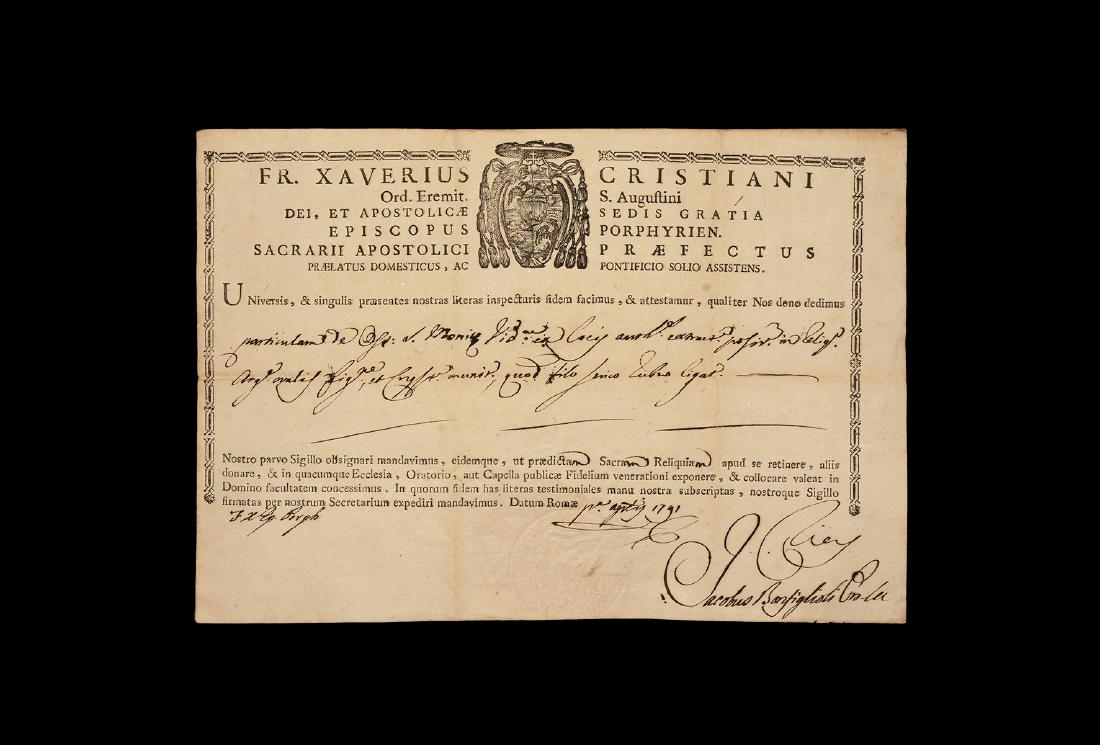 FR. XAVERIUS CRISTIANI
Ord. Eremit. S. Auguſtini
DEI, ET APOSTOLICÆ SEDIS GRATIA
EPISCOPUS PORPHYRIEN.
SACRARII APOSTOLICI PRÆFECTUS
PRÆLATUS DOMESTICUS, AC PONTIFICIO SOLIO ASSISTENS.
UNiverſis, & ſingulis præsentes nostras literas inspecturis fidem facimus, & attestamur, qualiter Nos dono dedimus
particulam de S. Monicæ Vid. ex
et munit. quod filo serico rubro ligat.
Nostro parvo Sigillo obsignari mandavimus, eidemque, ut prædictam Sacram Reliquiam apud se retinere, aliis
donare, & in quacumque Ecclesia, Oratorio, aut Capella publicæ Fidelium venerationi exponere, & collocare valeat in
Domino facultatem concessimus. In quorum fidem has literas testimoniales manu nostra subscriptas, nostroque Sigillo
firmatas per nostrum Secretarium expediri mandavimus. Datum Romæ 1791
F X Ep. Porph
Jacobus